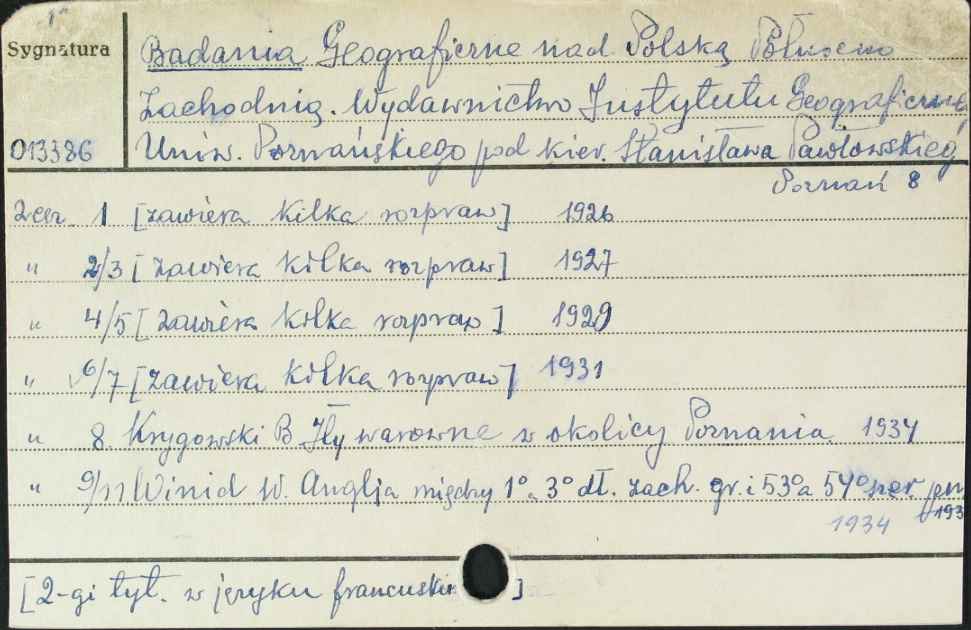 Sygnatura
Badania Geograficzne nad Polską Północno
Zachodnią. Wydawnictwo Instytutu Geograficzneg
013386 Uniw. Poznańskiego pod kier. Stanisława Pawłowskieg
Poznań 8
Zesz. 1 [zawiera kilka rozpraw] 1926
" 2/3 [zawiera kilka rozpraw] 1927
" 4/5 [zawiera kilka rozpraw] 1929
" 6/7 [zawiera kilka rozpraw] 1931
" 8. Krygowski B Iły warowne w okolicy Poznania 1934
" 9/11 Winid W. Anglja między 1° a 3° dł. zach. gr. i 53° a 54° szer
1934 193
[2-gi tyt. w języku francuskim]